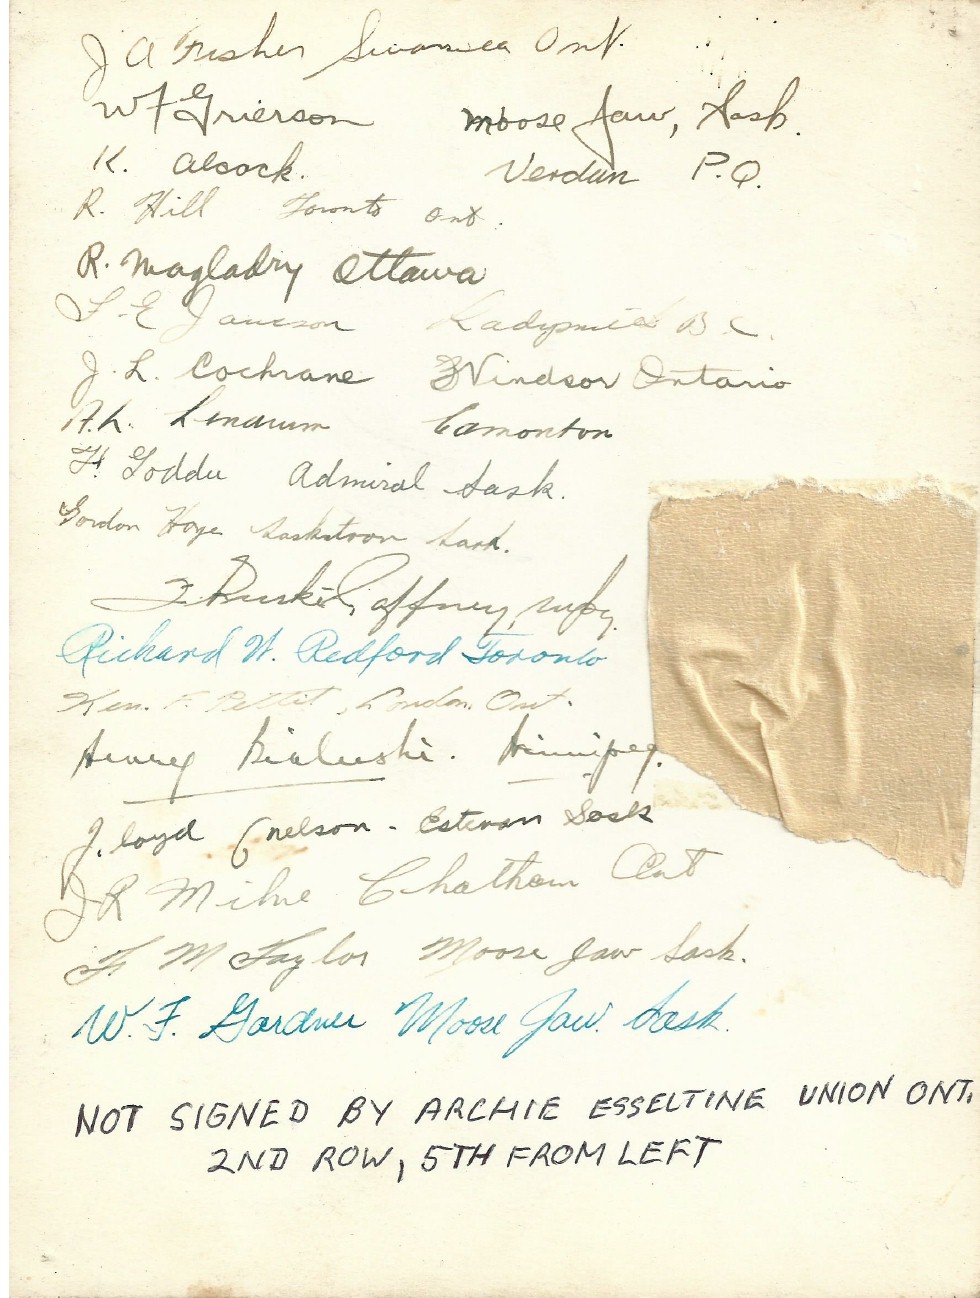 J A Fisher Swansea Ont.
W F Grierson Moose Jaw, Sask.
K. Alcock. Verdun P.Q.
R. Hill Toronto Ont.
R. Magladry Ottawa
E Ladysmith B.C.
J. L. Cochrane Windsor Ontario
A.L. Lendrum Edmonton
H. Goddu Admiral Sask.
Gordon Hoge Saskatoon Sask.
Gaffney,
Richard W. Redford Toronto
Ken. F. Pettit, London. Ont.
Henry Bialuski. Winnipeg.
J. Loyd Nelson - Estevan Sask
J R Milne Chatham Ont
F M Taylor Moose Jaw Sask.
W. F. Gardner Moose Jaw. Sask.
NOT SIGNED BY ARCHIE ESSELTINE UNION ONT.
2ND ROW, 5TH FROM LEFT